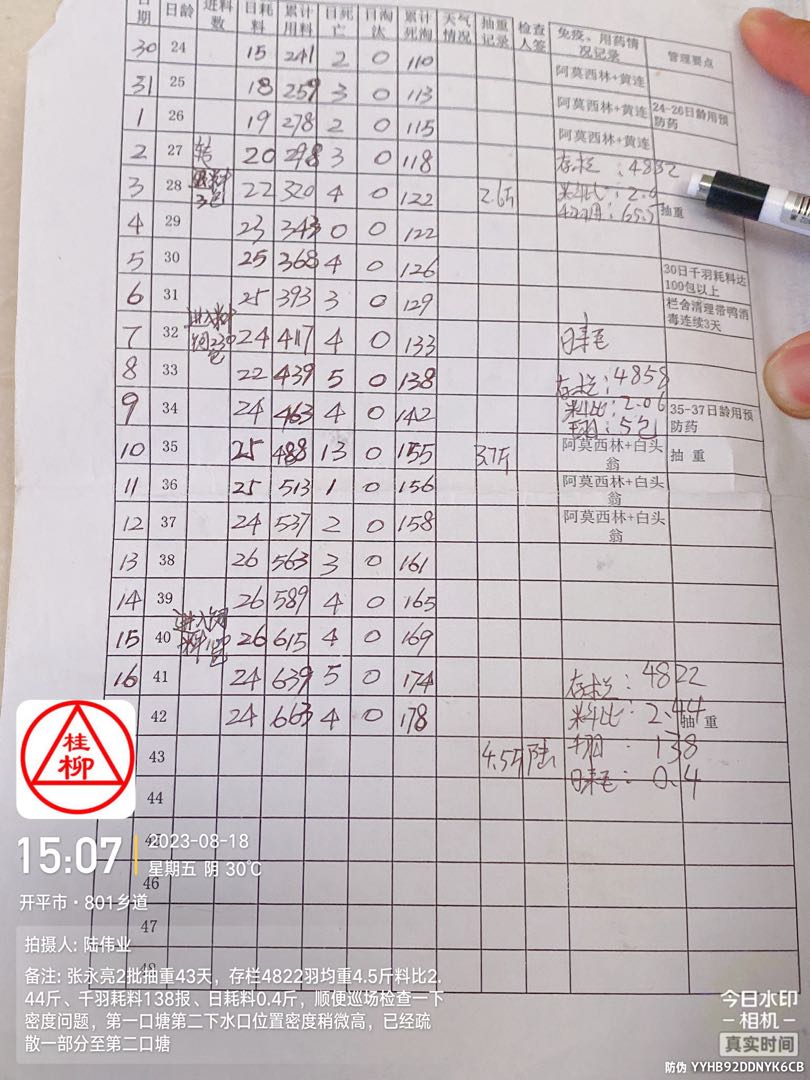 日期 日龄 进料数 日耗料 累计用料 日死亡 日淘汰 累计死淘 天气情况 抽重记录 检查人签 免疫、用药情况记录 管理要点
30 24 15 241 2 0 110 阿莫西林+黄连
31 25 18 259 3 0 113 阿莫西林+黄连 24-26日龄用预防药
1 26 19 278 2 0 115 阿莫西林+黄连
2 27 转 20 298 3 0 118 存栏:4832
3 28 22 320 4 0 122 2.6斤 料比:2.0 抽重
4 29 23 343 0 0 122
5 30 25 368 4 0 126 30日千羽耗料达100包以上
6 31 25 393 3 0 129 栏舍清理带鸭消毒连续3天
7 32 24 417 4 0 133 日耗
8 33 22 439 5 0 138 存栏:4858
9 34 24 463 4 0 142 料比:2.06 35-37日龄用预防药
千羽:5包
10 35 25 488 13 0 155 3.7斤 阿莫西林+白头翁 抽重
11 36 25 513 1 0 156 阿莫西林+白头翁
12 37 24 537 2 0 158 阿莫西林+白头翁
13 38 26 563 3 0 161
14 39 26 589 4 0 165
15 40 26 615 4 0 169
16 41 24 639 5 0 174 存栏:4822
42 24 663 4 0 178 料比:2.44 抽重
43 4.5斤 陆 千羽:138
日耗:0.4
44
45
46
47
48
桂柳
15:07
2023-08-18
星期五 阴 30℃
开平市·801乡道
拍摄人: 陆伟业
备注: 张永亮2批抽重43天，存栏4822羽均重4.5斤料比2.
44斤、千羽耗料138报、日耗料0.4斤，顺便巡场检查一下
密度问题，第一口塘第二下水口位置密度稍微高，已经疏
散一部分至第二口塘
今日水印
-相机-
真实时间
防伪 YYHB92DDNYK6CB